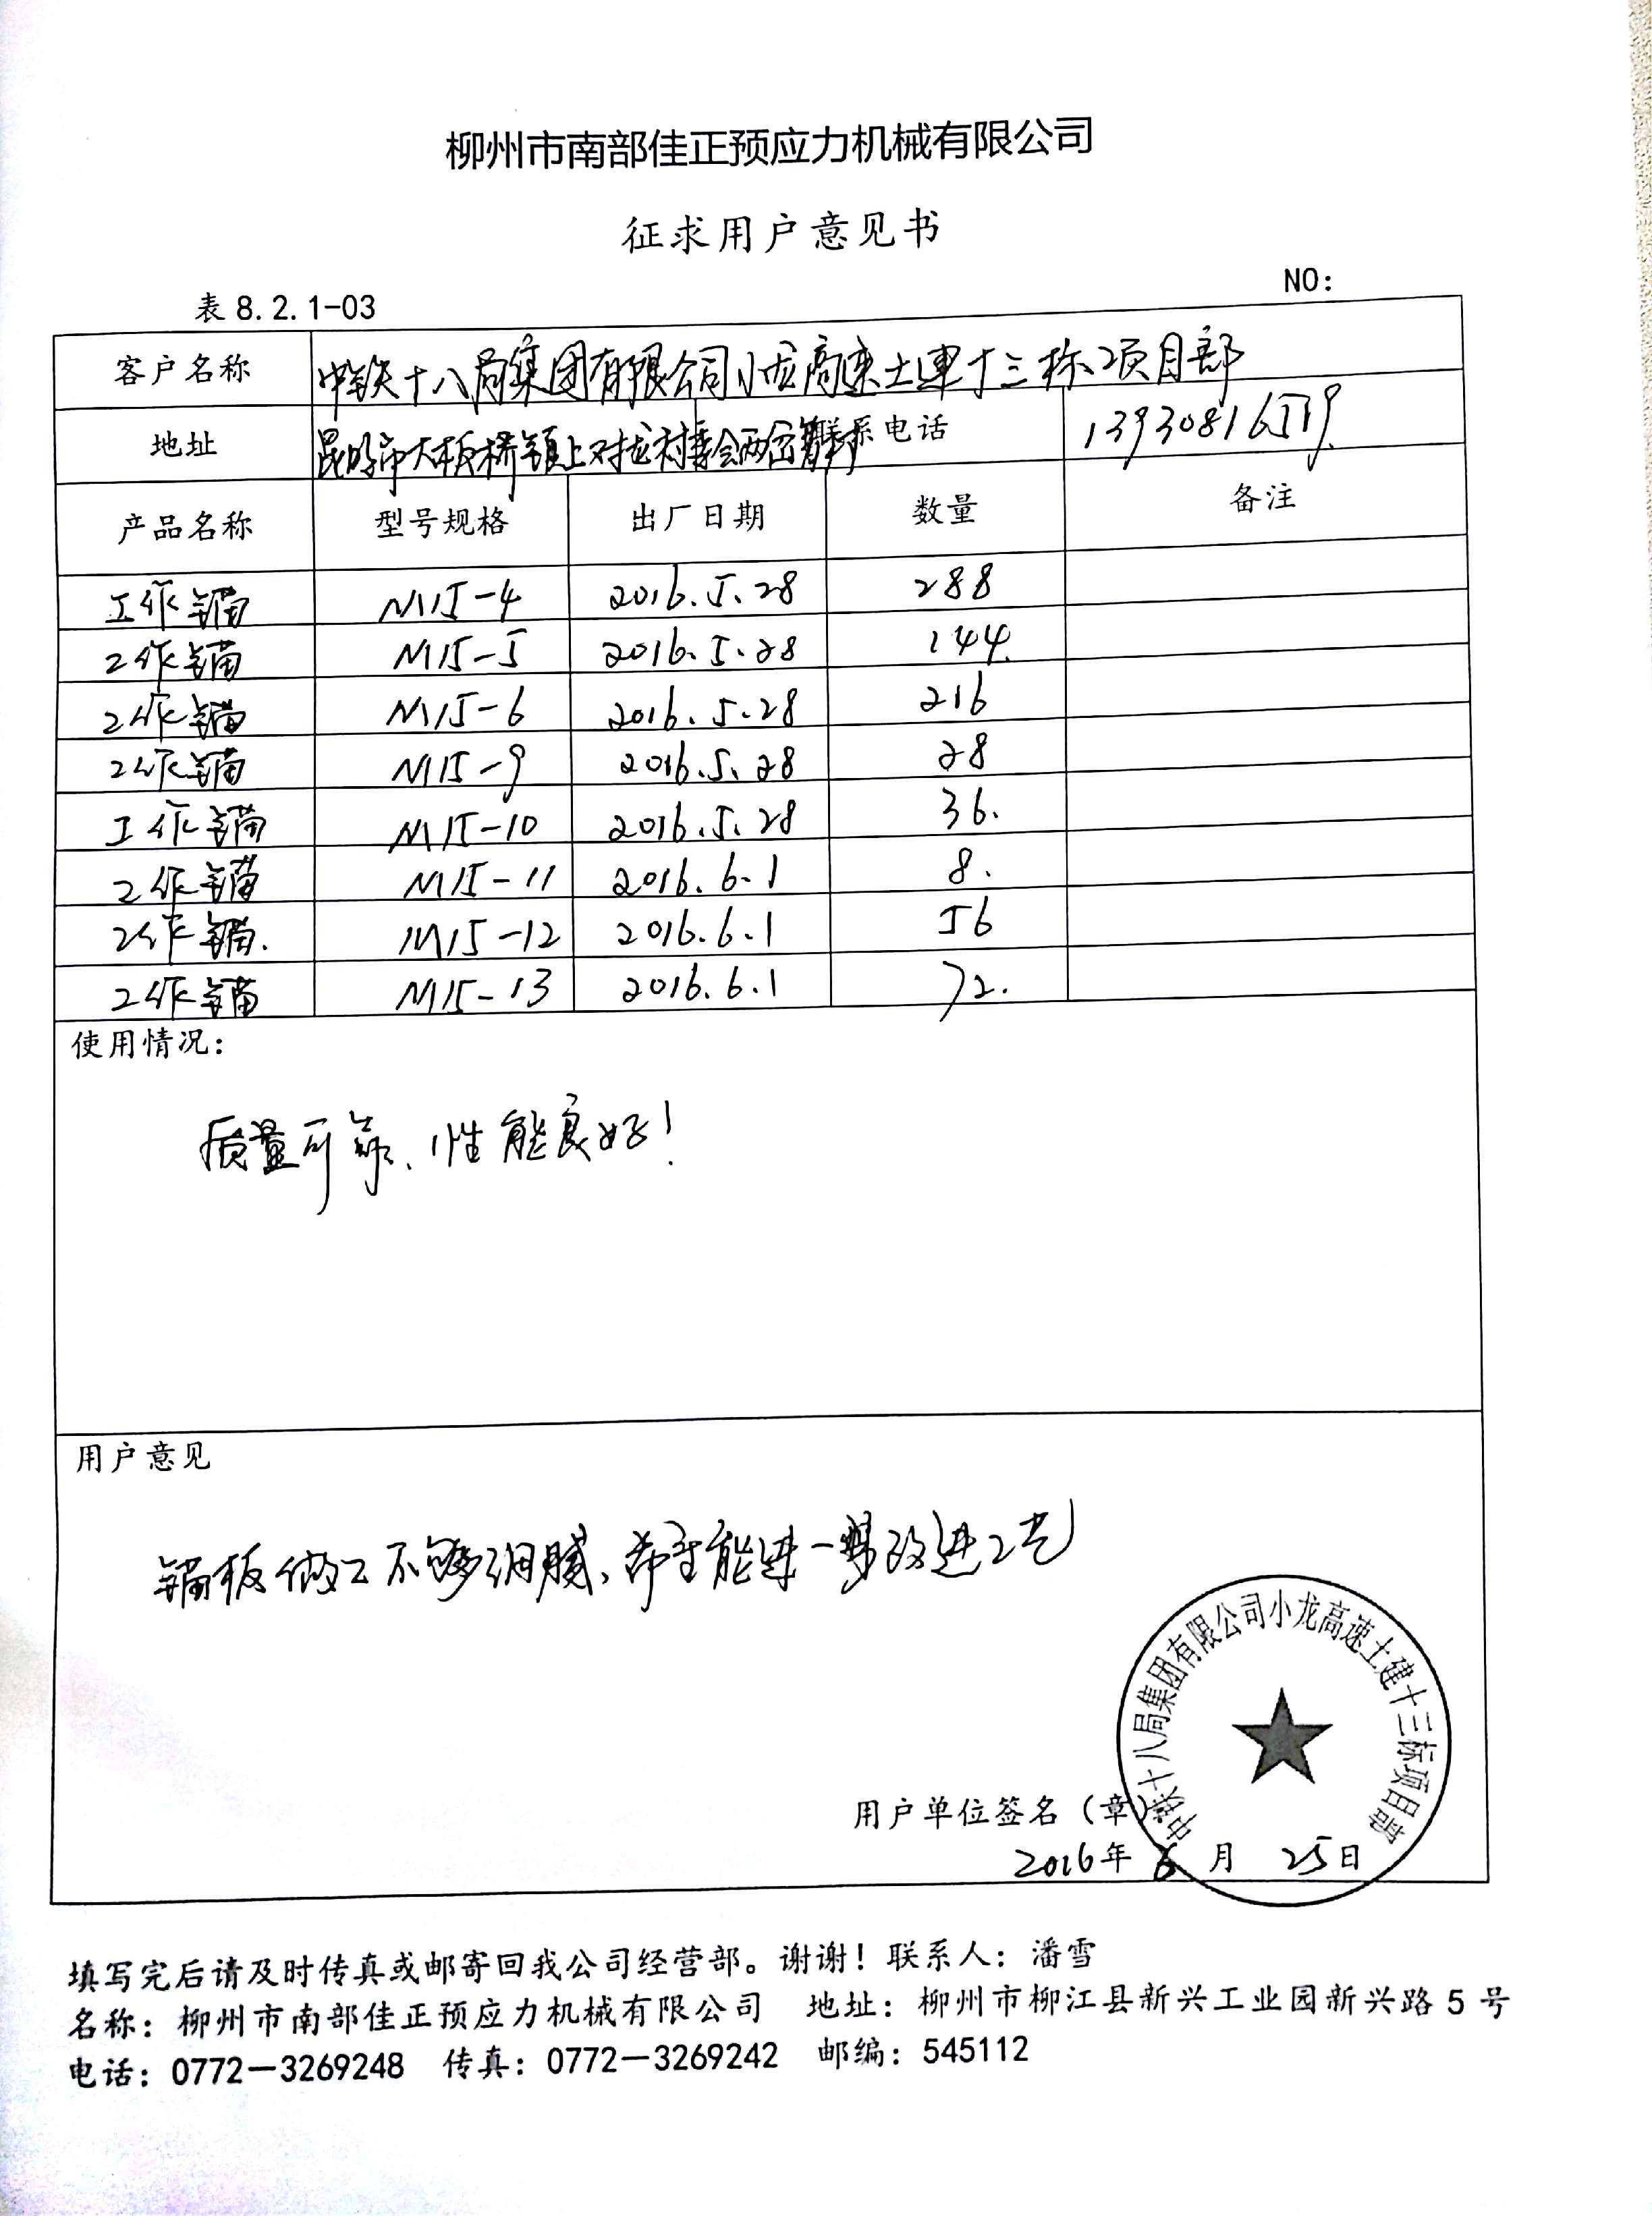 柳州市南部佳正预应力机械有限公司
征求用户意见书
表8.2.1-03 NO:
客户名称 中铁十八局集团有限公司小龙高速土建十三标项目部
地址 昆明市大板桥镇上对龙村委会 联系电话 13930816519
产品名称 型号规格 出厂日期 数量 备注
工作锚 M15-4 2016.5.28 288
工作锚 M15-5 2016.5.28 144
工作锚 M15-6 2016.5.28 216
工作锚 M15-9 2016.5.28 28
工作锚 M15-10 2016.5.28 36.
工作锚 M15-11 2016.6.1 8.
工作锚. M15-12 2016.6.1 56
工作锚 M15-13 2016.6.1 72.
使用情况：
质量可靠、性能良好！
用户意见
锚板做工不够细腻、希望能进一步改进工艺
中铁十八局集团有限公司小龙高速土建十三标项目部
用户单位签名（章）
2016年 月 25日
填写完后请及时传真或邮寄回我公司经营部。谢谢！联系人：潘雪
名称：柳州市南部佳正预应力机械有限公司 地址：柳州市柳江县新兴工业园新兴路5号
电话：0772—3269248 传真：0772—3269242 邮编：545112